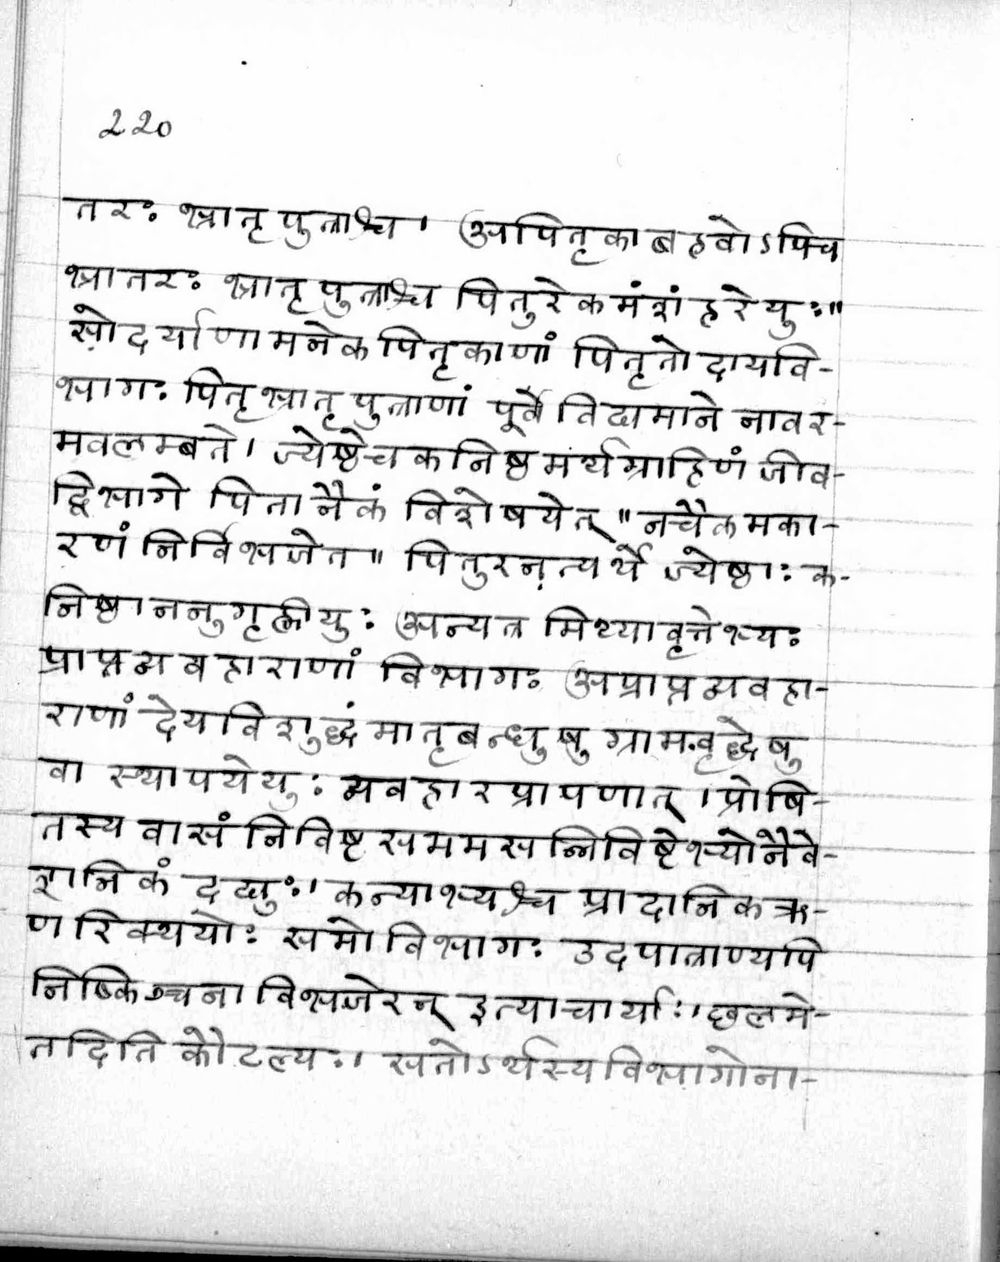 220
तरः भ्रातृपुत्राश्च। अपितृका बहवोऽपिच
भ्रातरः भ्रातृपुत्राश्च पितुरेकमंशं हरेयुः"
सोदर्याणामनेकपितृकाणां पितृतो दायवि-
भागः पितृभ्रातृपुत्राणां पूर्वे विद्यमाने नावर-
मवलम्बते। ज्येष्ठेच कनिष्ठमर्थग्राहिणं जीव-
द्विभागे पिता नैकं विशेषयेत् "नचैकमका-
रणं निर्विभजेत" पितुरनत्यर्थे ज्येष्ठाः क-
निष्ठाननुगृह्णीयुः अन्यत्र मिथ्यावृत्तेभ्यः
प्राप्तव्यवहाराणां विभागः अप्राप्तव्यवहा-
राणां देयविशुद्धं मातृबन्धुषु ग्रामवृद्धेषु
वा स्थापयेयुः व्यवहारप्रापणात्। प्रोषि-
तस्य वासंनिविष्टसममसन्निविष्टेभ्योनैवे-
शनिकं दद्युः। कन्याभ्यश्च प्रादानिकऋ-
णरिक्थयोः समो विभागः उदपात्राण्यपि
निष्किञ्चना विभजेरन् इत्याचार्याः। छलमे-
तदिति कौटल्यः। सतोऽर्थस्यविभागोना-